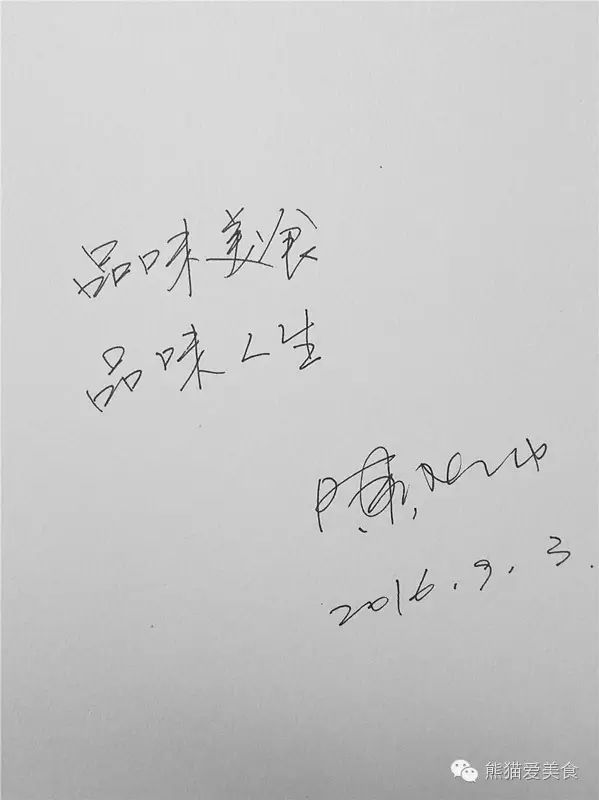 品味美食
品味人生
陈
2016.9.3.
熊猫爱美食